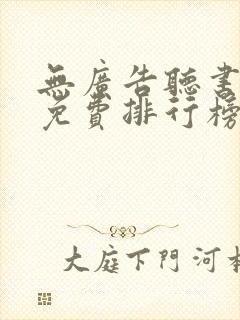 無廣告聽書
免費排行榜
大庭下門河